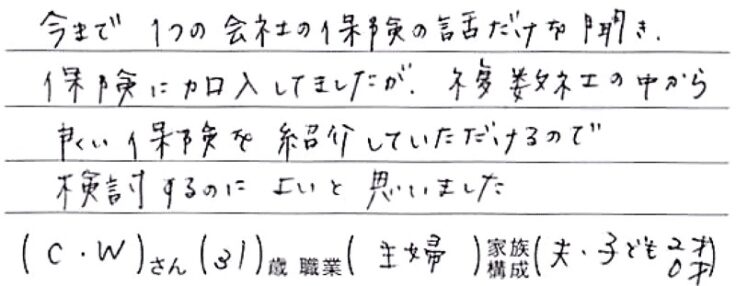 今まで 1つの会社の保険の話だけを聞き、
保険に加入してましたが、複数社の中から
良い保険を紹介していただけるので
検討するのによいと思いました
(C・W)さん(31)歳 職業(主婦)家族構成(夫・子ども2才0才)